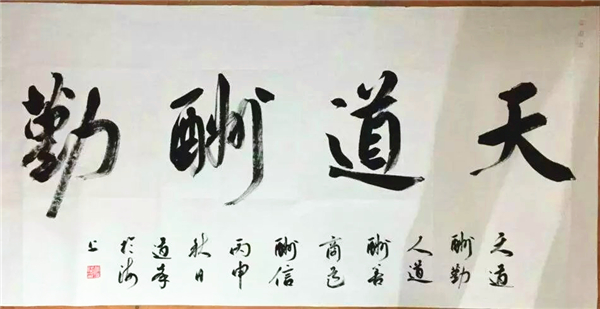 天道酬勤
天道
酬勤
人道
酬善
商道
酬信
丙申
秋日
道
於海
上